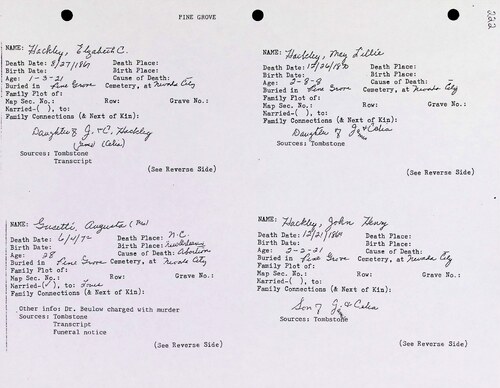 PINE GROVE
NAME: Hackley, Elizabeth C.
Death Date: 8/27/1869 Death Place:
Birth Date: Birth Place:
Age: 1-3-21 Cause of Death:
Buried in Pine Grove Cemetery, at Nevada City
Family Plot of:
Map Sec. No.: Row: Grave No.:
Married-( ), to:
Family Connections (& Next of Kin):
Daughter of J. & C. Hackley
(Celia)
Sources: Tombstone
Transcript
(See Reverse Side)
NAME: Hackley, May Lillie
Death Date: 12/26/1870 Death Place:
Birth Date: Birth Place:
Age: 2-8-8 Cause of Death:
Buried in Pine Grove Cemetery, at Nevada City
Family Plot of:
Map Sec. No.: Row: Grave No.:
Married-( ), to:
Family Connections (& Next of Kin):
Daughter of J. & Celia
Sources: Tombstone
(See Reverse Side)
NAME: Gusetti, Augusta
Death Date: 6/4/72 Death Place: N.C.
Birth Date: Birth Place:
Age: 28 Cause of Death: Abortion
Buried in Pine Grove Cemetery, at Nevada City
Family Plot of:
Map Sec. No.: Row: Grave No.:
Married-(✓), to:
Family Connections (& Next of Kin):
Other info: Dr. Beulow charged with murder
Sources: Tombstone
Transcript
Funeral notice
(See Reverse Side)
NAME: Hackley, John Henry
Death Date: 12/21/1864 Death Place:
Birth Date: Birth Place:
Age: 2-2-21 Cause of Death:
Buried in Pine Grove Cemetery, at Nevada City
Family Plot of:
Map Sec. No.: Row: Grave No.:
Married-( ), to:
Family Connections (& Next of Kin):
Son of J. & Celia
Sources: Tombstone
(See Reverse Side)